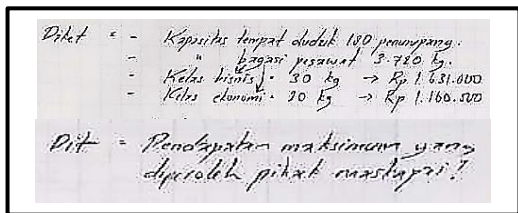 Diket = - Kapasitas tempat duduk 180 penumpang.
- " bagasi pesawat 3.720 kg.
- Kelas bisnis = 30 kg → Rp 1.631.000
- Kelas ekonomi = 20 kg → Rp 1.160.500
Dit = Pendapatan maksimum yang
diperoleh pihak maskapai?